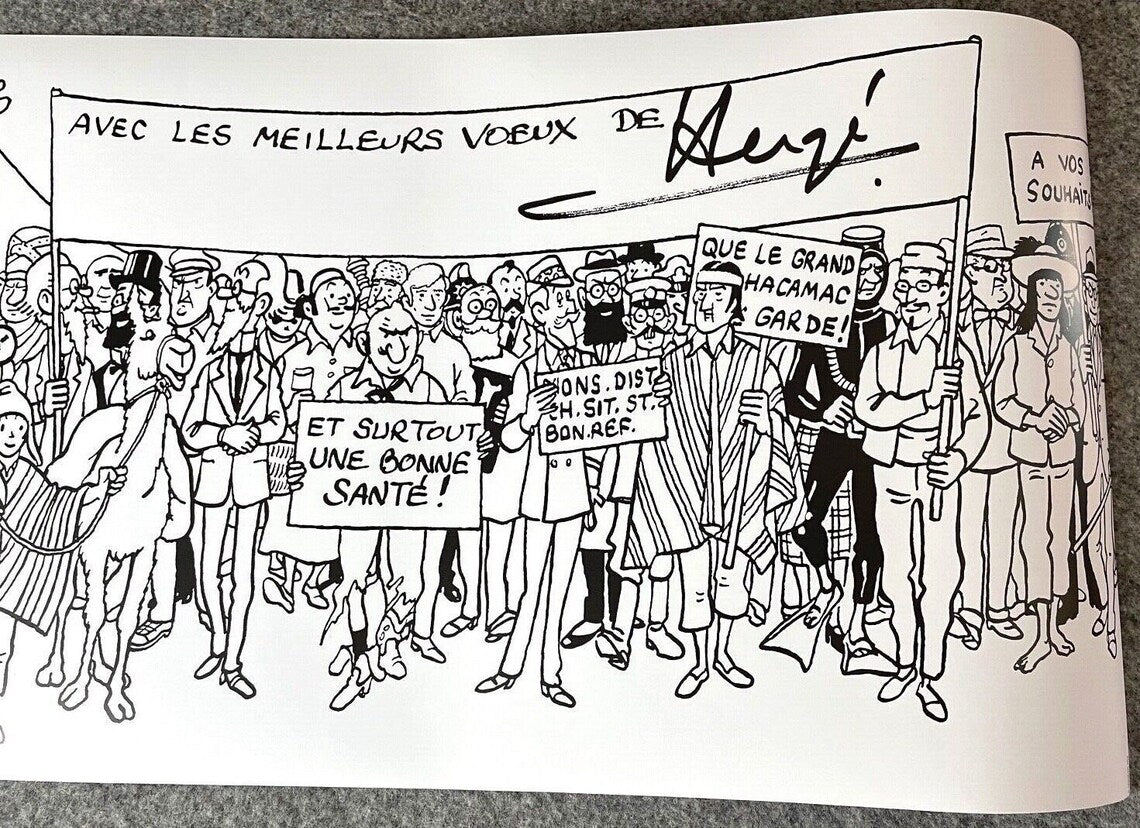 AVEC LES MEILLEURS VOEUX DE Hergé
A VOS
SOUHAITS
QUE LE GRAND
HACAMAC
GARDE!
ONS. DIST.
CH. SIT. ST.
BON. REF.
ET SURTOUT
UNE BONNE
SANTÉ!